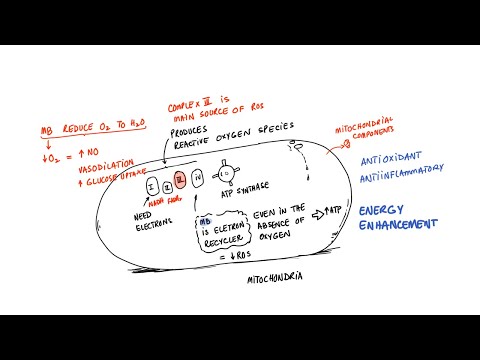 COMPLEX III IS
MAIN SOURCE OF ROS
MB REDUCE O2 TO H2O
↓O2 = ↑ NO
VASODILATION
↑ GLUCOSE UPTAKE
PRODUCES
REACTIVE OXYGEN SPECIES
MITOCHONDRIAL
COMPONENTS
I II III IV
NADH FADH2
ATP SYNTHASE
NEED
ELECTRONS
MB
IS ELETRON
RECYCLER
EVEN IN THE
ABSENCE OF
OXYGEN
↑ATP
= ↓ROS
ANTIOXIDANT
ANTIINFLAMMATORY
ENERGY
ENHANCEMENT
MITOCHONDRIA